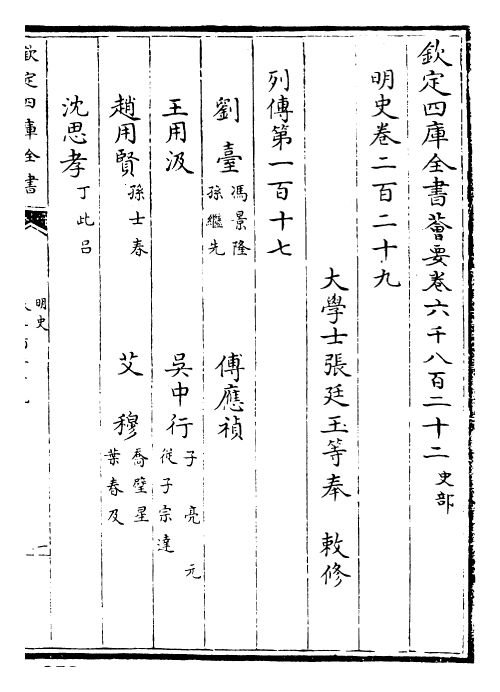 欽定四庫全書薈要卷六千八百二十二 史部
明史卷二百二十九
大學士張廷玉等奉 敕修
列傳第一百十七
劉臺 馮景隆 孫繼先 傅應禎
王用汲 吳中行 子亮 元 從子宗達
趙用賢 孫士春 艾穆 喬璧星 葉春及
沈思孝 丁此呂
欽定四庫全書
明史